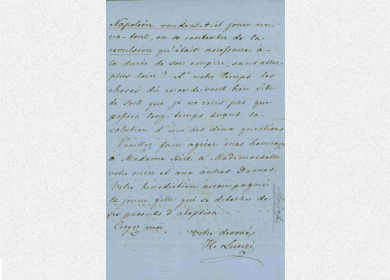 Napoléon voudrait-il jouer un
va-tout, ou se contenter de la
revulsion qu'était nécessaire à
la durée de son empire, sans aller
plus loin? A notre temps les
choses du monde vont bien vite
de sorte que je ne crois pas que
passera long-temps avant la
solution d'une des deux questions
Veuillez faire agréer mes hommages
à Madame Hill, à Mademoiselle
votre nièce et aux autres Dames.
Votre benediction accompagne
la jeune fille qui se détache de
ses parents d'adoption
Croyez moi
Votre devoué
H.